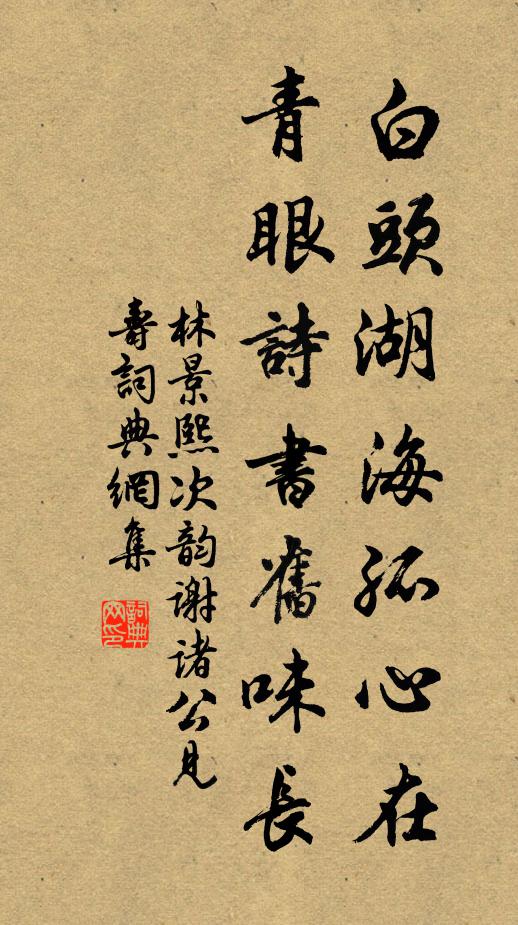 白頭湖海孤心在
青眼詩書舊味長
林景熙次韵謝诸公見
壽詞典網集
詞典
网印